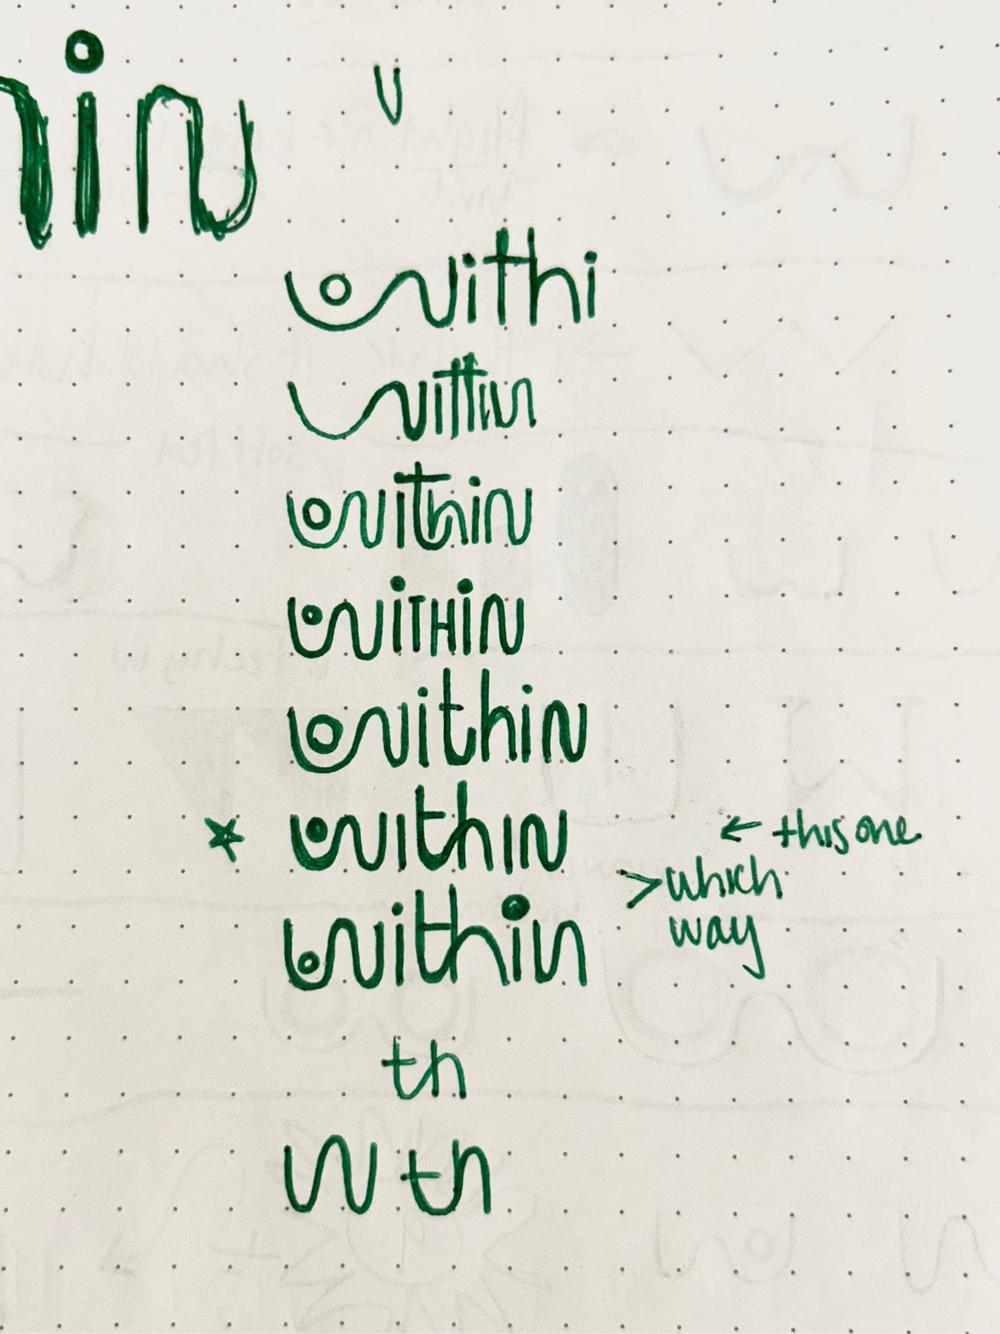 hin
withi
within
within
wiTHiN
within
within
← this one
>which
way
within
th
W th